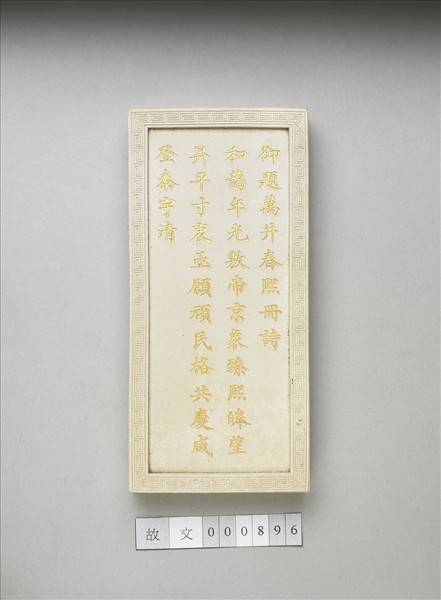 御題萬井春熙冊詩
和藹年光敷帝京象臻熙皞望
昇平寸衷亟願頑民格共慶咸
登泰宇清
故文000896